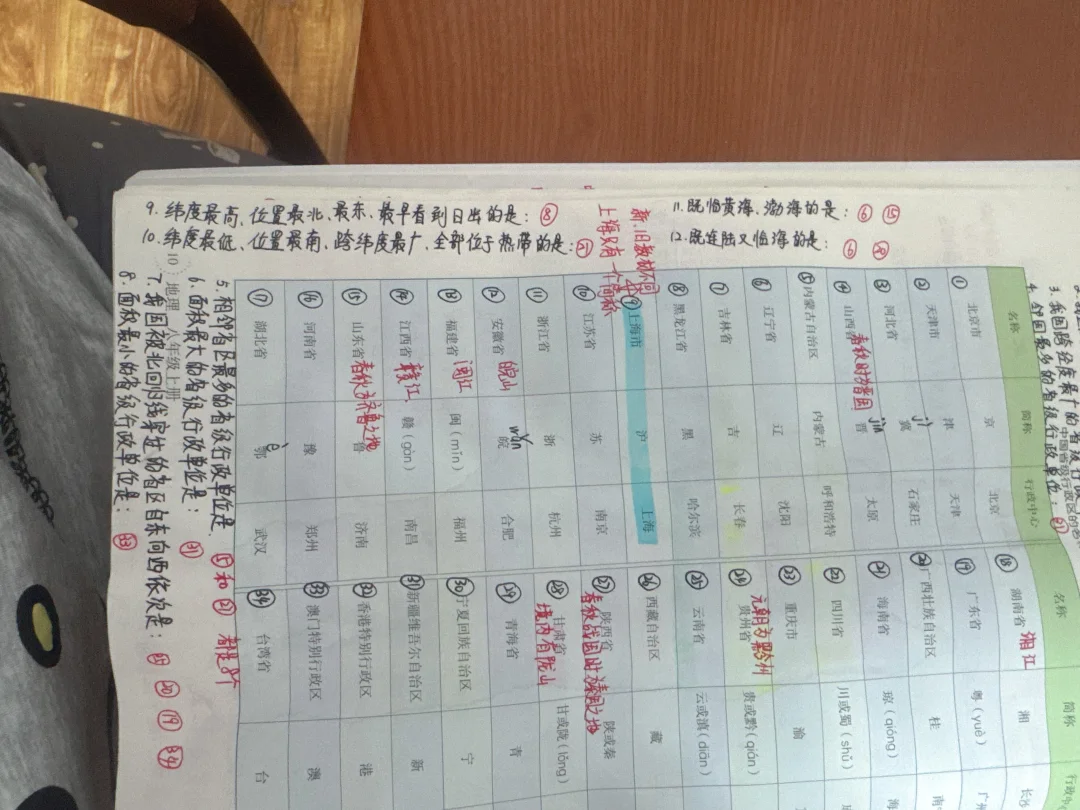 9. 纬度最高、位置最北、最东、最早看到日出的是: ⑧
10. 纬度最低、位置最南、跨纬度最广、全部位于热带的是: ㉑
11. 既临黄海、渤海的是: ⑥ ⑮
12. 既连陆又临海的是: ⑥
新、旧教材不同
上海只有一个简称
3. 我国跨经度最广的省级行
4. 邻国最多的省级行政单位: ㉛
中国省级行政区的名
名称 简称 行政中心
① 北京市 京 北京
② 天津市 津 天津
③ 河北省 冀 jì 石家庄
④ 山西省 春秋时为晋国 晋 jìn 太原
⑤ 内蒙古自治区 内蒙古 呼和浩特
⑥ 辽宁省 辽 沈阳
⑦ 吉林省 吉 长春
⑧ 黑龙江省 黑 哈尔滨
⑨ 上海市 沪 上海
⑩ 江苏省 苏 南京
⑪ 浙江省 浙 杭州
⑫ 安徽省 皖山 皖 wǎn 合肥
⑬ 福建省 闽江 闽（mǐn） 福州
⑭ 江西省 赣江 赣（gàn） 南昌
⑮ 山东省 春秋为齐鲁之地 鲁 济南
⑯ 河南省 豫 郑州
⑰ 湖北省 鄂 è 武汉
名称 简称 行政中
⑱ 湖南省 湘江 湘 长沙
⑲ 广东省 粤（yuè） 广州
⑳ 广西壮族自治区 桂 南
㉑ 海南省 琼（qióng） 海
㉒ 四川省 川或蜀（shǔ）
㉓ 重庆市 渝
㉔ 贵州省 元朝为黔州 贵或黔（qián）
㉕ 云南省 云或滇（diān）
㉖ 西藏自治区 藏
㉗ 陕西省 春秋战国时为秦国之地 陕或秦
㉘ 甘肃省 境内有陇山 甘或陇（lǒng）
㉙ 青海省 青
㉚ 宁夏回族自治区 宁
㉛ 新疆维吾尔自治区 新
㉜ 香港特别行政区 港
㉝ 澳门特别行政区 澳
㉞ 台湾省 台
5. 相邻省区最多的省级行政单位是: ⑤ 和 ㉗ 都是8个
6. 面积最大的省级行政单位是: ㉛
10 地理 八年级上册
7. 我国被北回归线穿过的省区自东向西依次是: ㉕ ⑳ ⑲ ㉞
8. 面积最小的省级行政单位是: ㉝